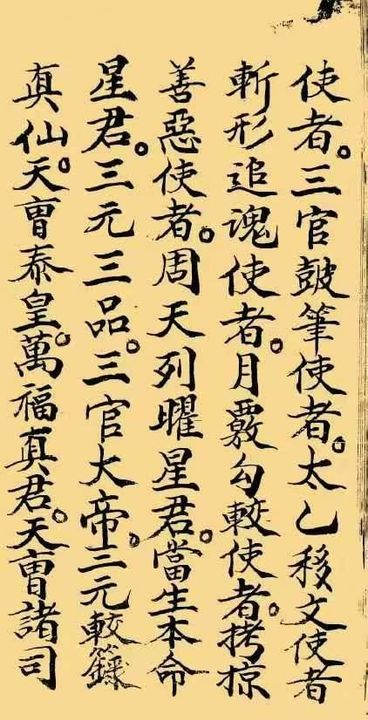 使者。三官皷筆使者。太乙移文使者
斬形追魂使者。月覈勾較使者。拷掠
善惡使者。周天列曜星君。當生本命
星君。三元三品。三官大帝。三元較籙
真仙。天曹泰皇。萬福真君。天曹諸司